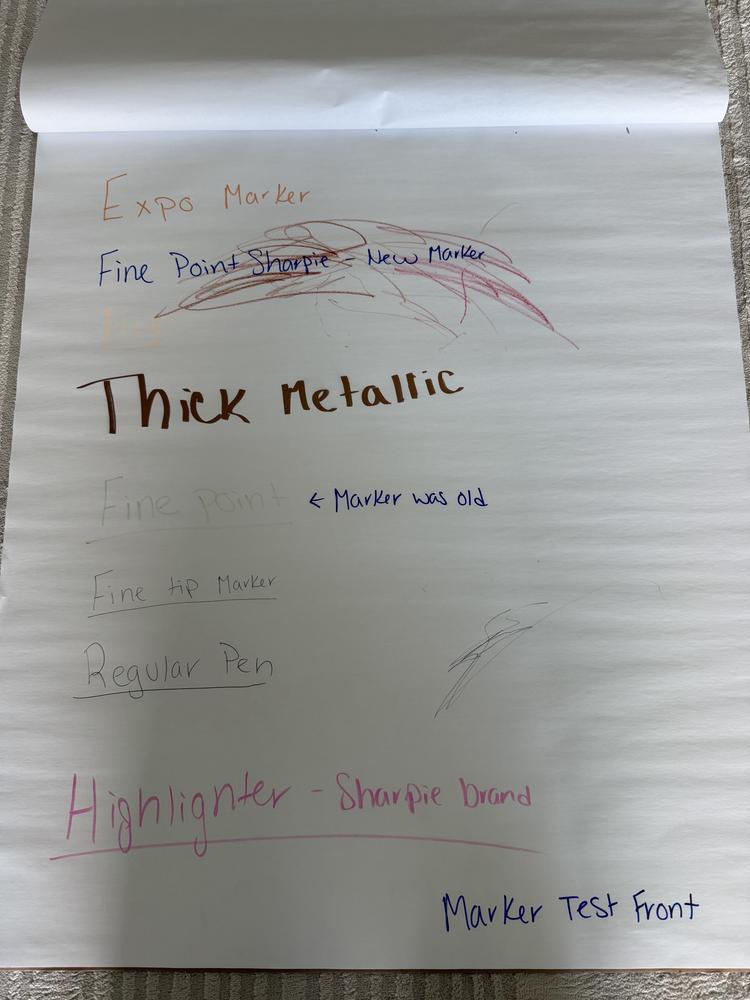 Expo Marker
Fine Point Sharpie - New Marker
Thick Metallic
Fine point ← Marker was old
Fine tip Marker
Regular Pen
Highlighter - Sharpie brand
Marker Test Front